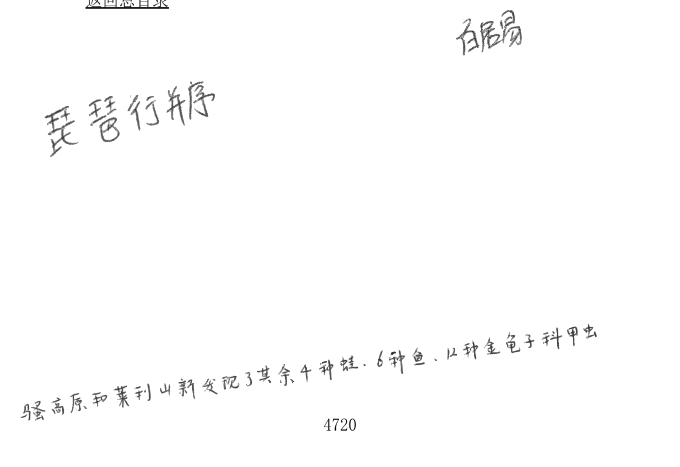 返回总目录
白居易
琵琶行并序
骚高原和莱利山新发现了其余4种蛙、6种鱼、12种金龟子科甲虫
4720